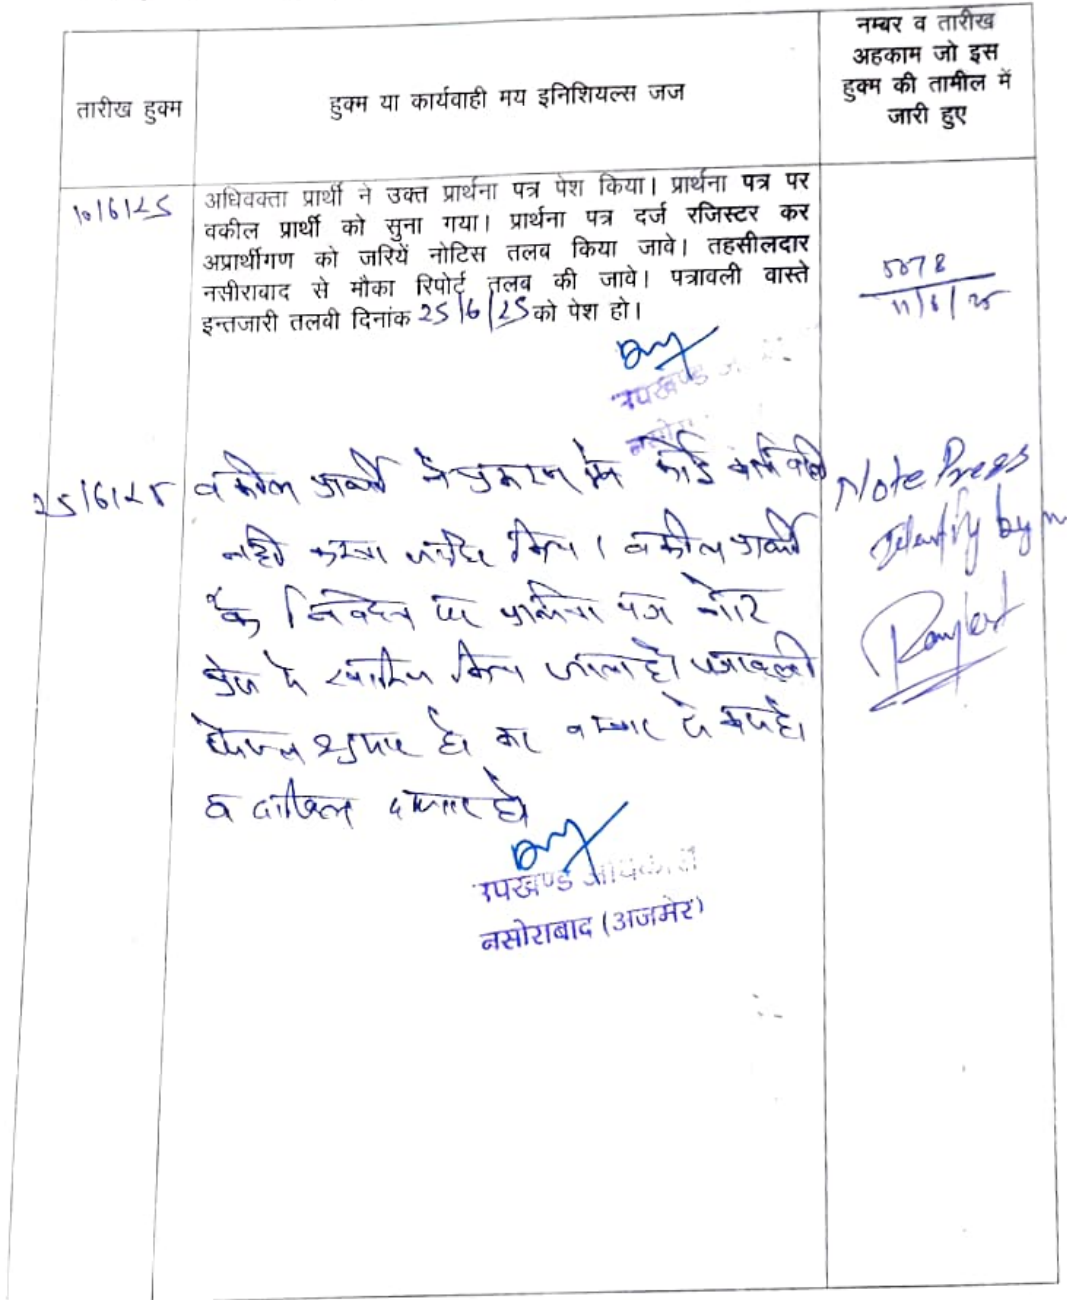 तारीख हुक्म
हुक्म या कार्यवाही मय इनिशियल्स जज
नम्बर व तारीख
अहकाम जो इस
हुक्म की तामील में
जारी हुए
10/6/25
अधिवक्ता प्रार्थी ने उक्त प्रार्थना पत्र पेश किया। प्रार्थना पत्र पर
वकील प्रार्थी को सुना गया। प्रार्थना पत्र दर्ज रजिस्टर कर
अप्रार्थीगण को जरियें नोटिस तलब किया जावे। तहसीलदार
नसीराबाद से मौका रिपोर्ट तलब की जावे। पत्रावली वास्ते
इन्तजारी तलवी दिनांक 25/6/25 को पेश हो।
11/6/25
उपखण्ड
25/6/25
वकील प्रार्थी ने प्रकरण में कोई कार्यवाही
नही करना जाहिर किया। वकील प्रार्थी
के निवेदन पर प्रार्थना पत्र नोट
प्रेस में खारिज किया जाता है। पत्रावली
फैसल शुमार हो कर नम्बर से कम हो।
व दाखिल दफ्तर हो
Note Press
by
उपखण्ड अधिकारी
नसीराबाद (अजमेर)